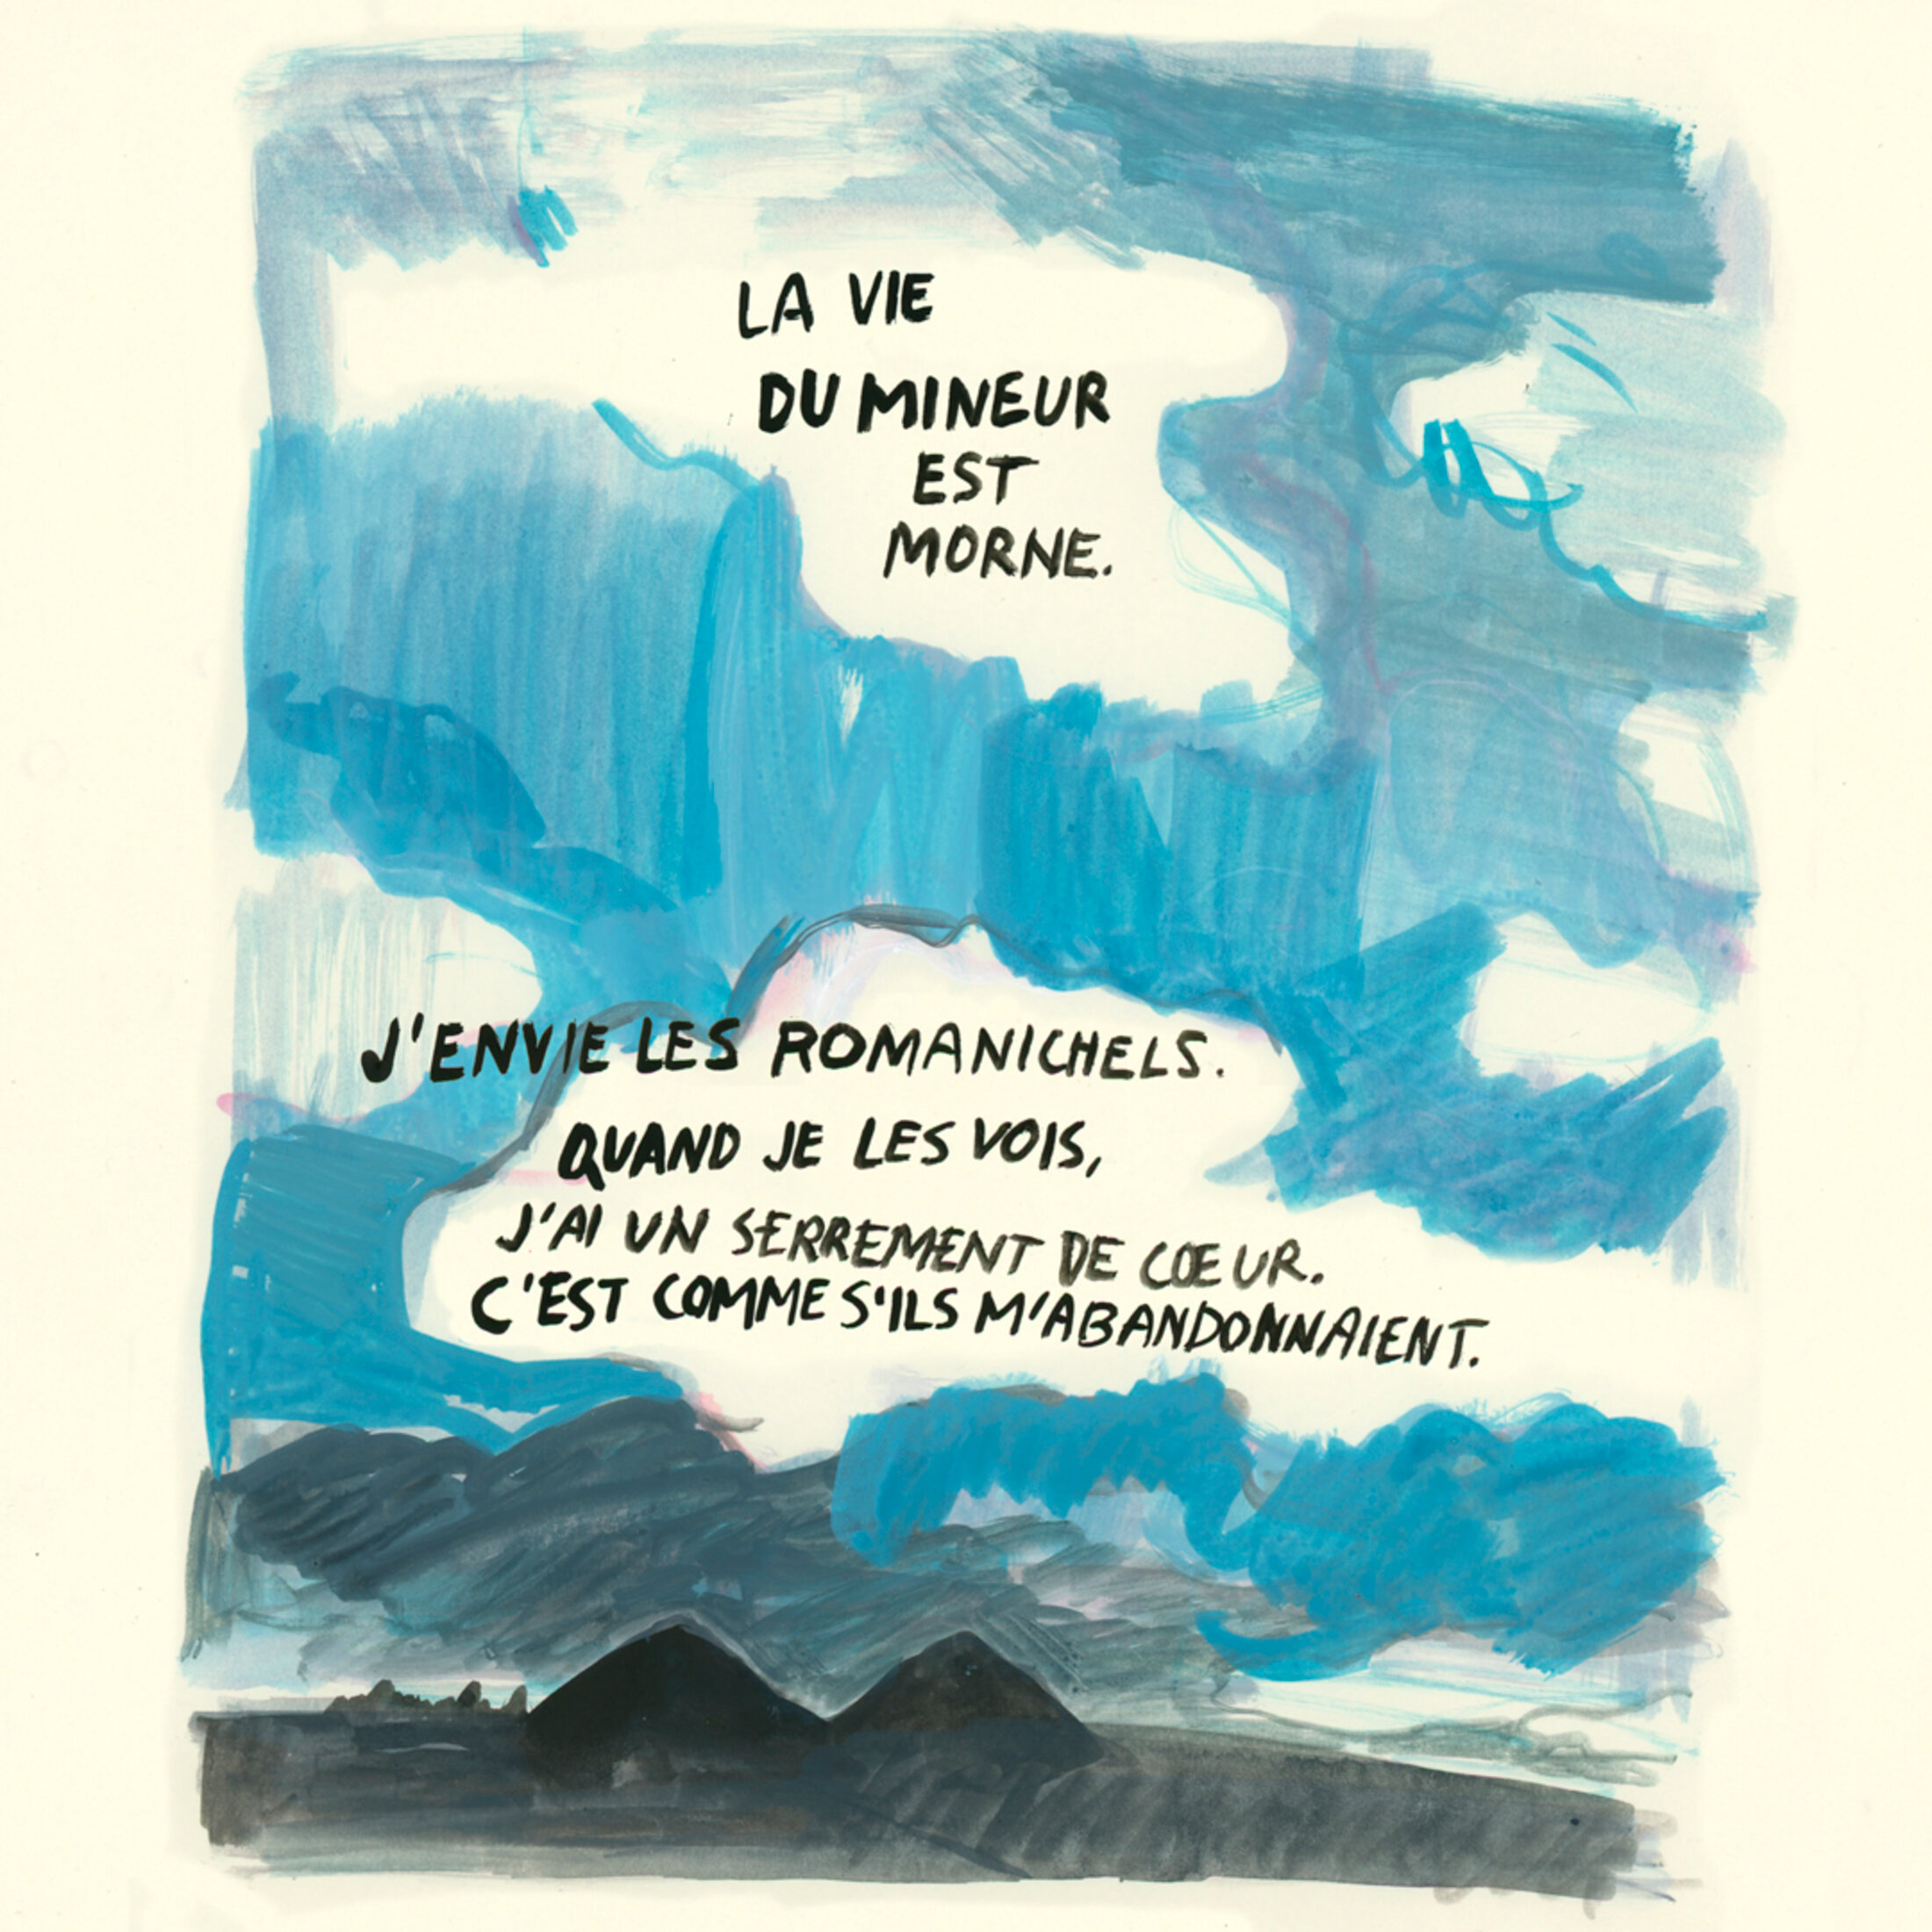 LA VIE
DU MINEUR
EST
MORNE.
J'ENVIE LES ROMANICHELS.
QUAND JE LES VOIS,
J'AI UN SERREMENT DE CŒUR.
C'EST COMME S'ILS M'ABANDONNAIENT.